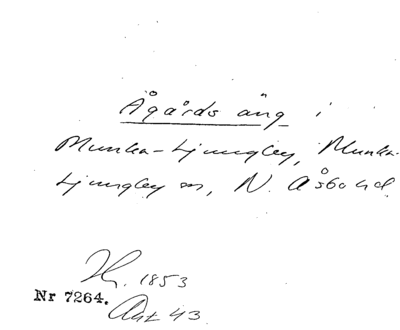 Ågårds äng i
Munka-Ljungby, Munka-
Ljungby sn, N. Åsbo hd.
1853
Nr 7264. Akt 43